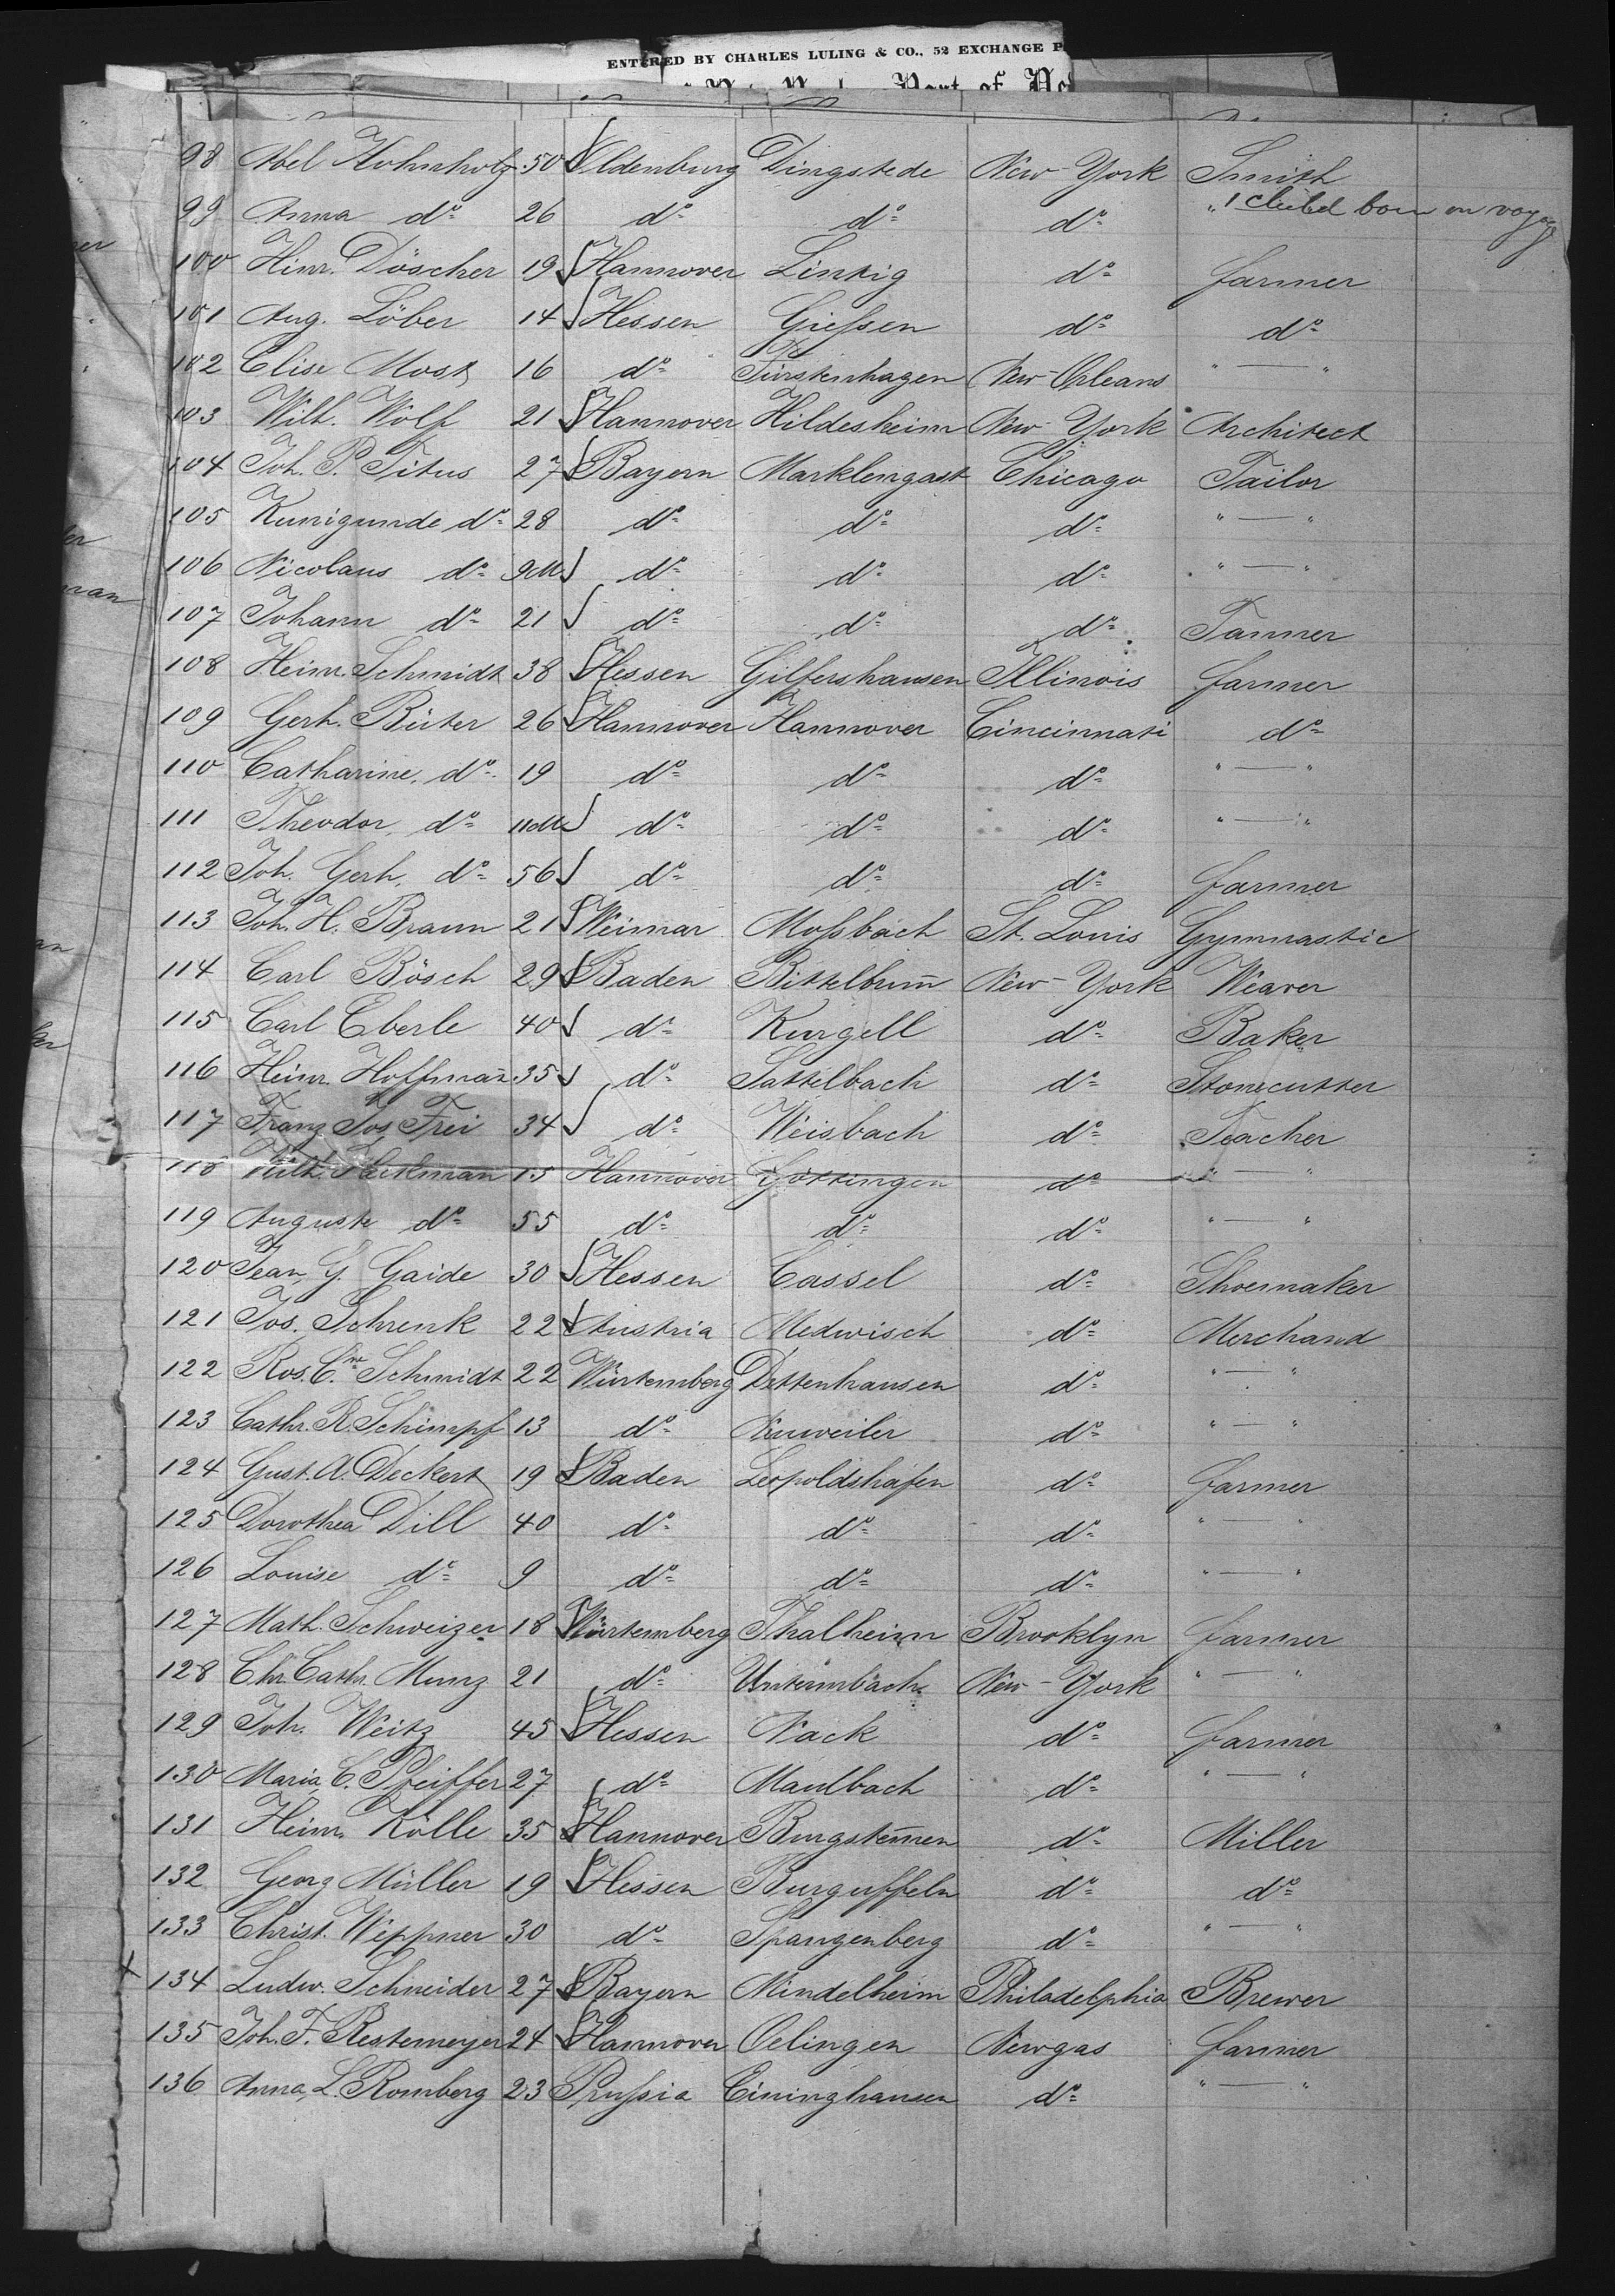 ENTERED BY CHARLES LULING & CO., 52 EXCHANGE P
Port of
98 Abel Hohnholz 50 Oldenburg Dingstede New-York Smith
99 Anna do 26 do do do " 1 child born on voyage
100 Hinr. Döscher 19 Hannover Lintig do farmer
101 Aug. Löber 14 Hessen Gieſsen do do
102 Elise Most 16 do Fürstenhagen New-Orleans " — "
103 Wilh. Wolf 21 Hannover Hildesheim New-York Architect
104 Joh. P. Titus 27 Bayern Marklengast Chicago Tailor
105 Kunigunde do 28 do do do " — "
106 Nicolaus do 9M do do do " — "
107 Johann do 21 do do do Tanner
108 Heinr. Schmidt 38 Hessen Gilfershausen Illinois farmer
109 Gerh. Büter 26 Hannover Hannover Cincinnati do
110 Catharine do 19 do do do " — "
111 Theodor do 11M do do do " — "
112 Joh. Gerh. do 56 do do do farmer
113 Joh. H. Braun 21 Weimar Moſsbach St. Louis Gymnastic
114 Carl Bösch 29 Baden Bittelbrun̄ New-York Weaver
115 Carl Eberle 40 do Kurzell do Baker
116 Heinr. Hoffman̄ 35 do Sattelbach do Stonecutter
117 Franz Jos. Frei 34 do Weisbach do Teacher
118 Wilh. 15 Hannover Göttingen do " — "
119 Auguste do 55 do do do " — "
120 Jean G. Gaide 30 Hessen Cassel do Shoemaker
121 Jos. Schrenk 22 Austria Medwisch do Merchand
122 Ros. Cne Schmidt 22 Würtemberg Dettenhausen do " — "
123 Cathr. R. Schimpf 13 do Neuweiler do " — "
124 Gust. A. Deckert 19 Baden Leopoldshafen do farmer
125 Dorothea Dill 40 do do do " — "
126 Louise do 9 do do do " — "
127 Math. Schweizer 18 Würtemberg Thalheim Brooklyn farmer
128 Chr. Cathr. Munz 21 do New-York " — "
129 Joh. Weitz 45 Hessen Nack do farmer
130 Maria C. Pfeiffer 27 do Maulbach do " — "
131 Heinr. Kölle 35 Hannover Burgstem̄en do Miller
132 Georg Müller 19 Hessen Burguffeln do do
133 Christ. Weppner 30 do Spangenberg do " — "
x 134 Ludw. Schneider 27 Bayern Mindelheim Philadelphia Brewer
135 Joh. F. Restemeyer 24 Hannover Oelingen Newgas farmer
136 Anna L. Romberg 23 Pruſsia Eininghausen do " — "